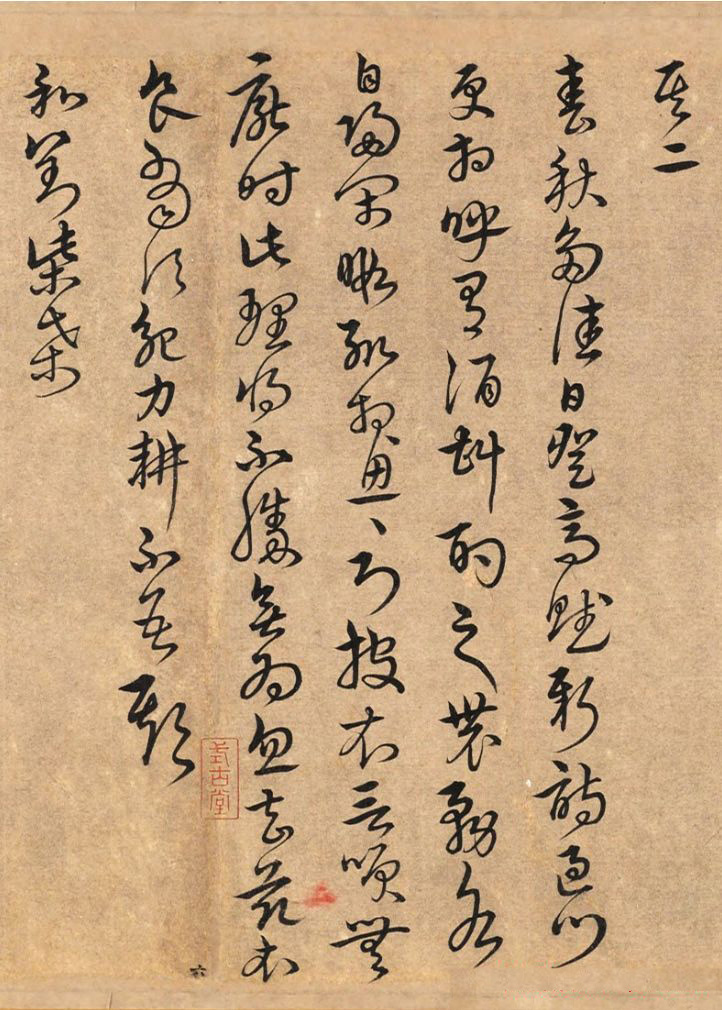 其二
春秋多佳日登高賦新詩過門
更相呼有酒斟酌之農務各
自歸閑暇輒相思〻乃披衣言笑無
厭時此理將不勝無為忽去茲衣
食當須紀力耕不吾欺
和劉柴桑
式古堂
六